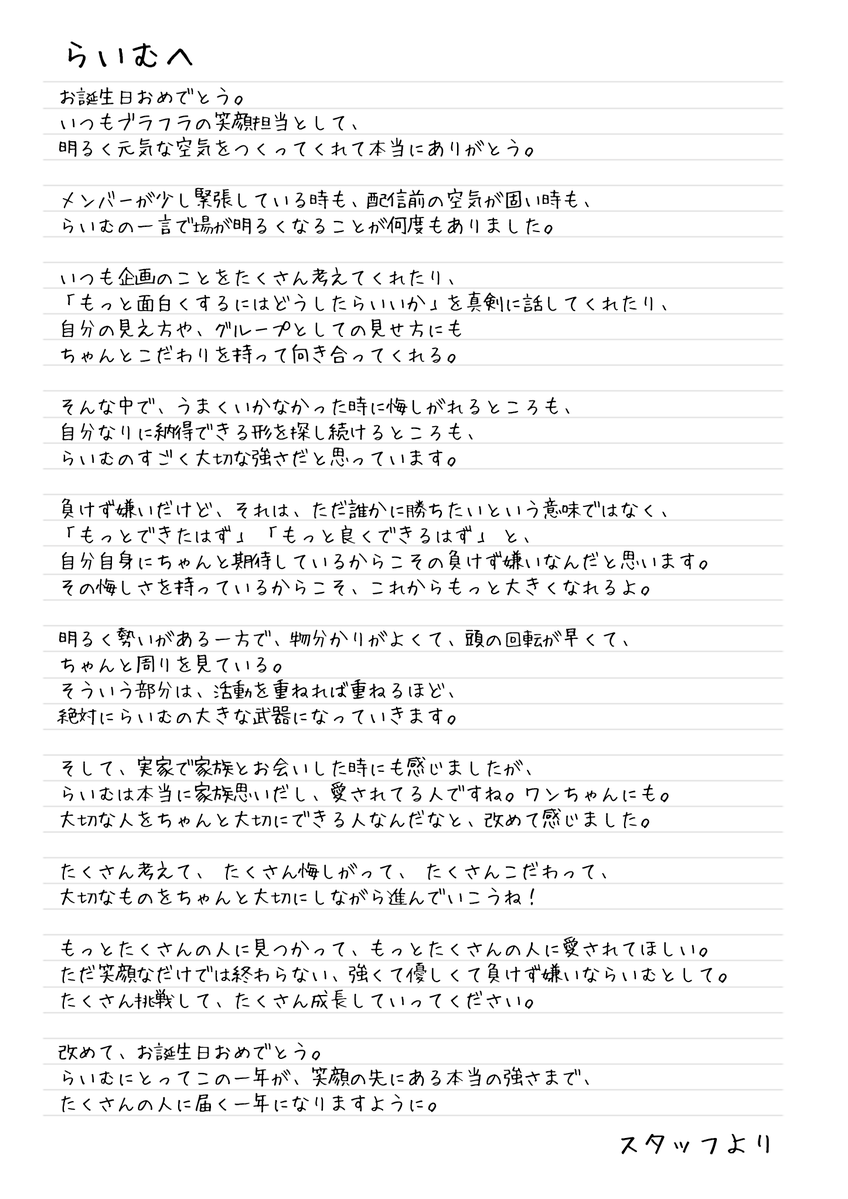 らいむへ
お誕生日おめでとう。
いつもブラフラの笑顔担当として、
明るく元気な空気をつくってくれて本当にありがとう。
メンバーが少し緊張している時も、配信前の空気が固い時も、
らいむの一言で場が明るくなることが何度もありました。
いつも企画のことをたくさん考えてくれたり、
「もっと面白くするにはどうしたらいいか」を真剣に話してくれたり、
自分の見え方や、グループとしての見せ方にも
ちゃんとこだわりを持って向き合ってくれる。
そんな中で、うまくいかなかった時に悔しがれるところも、
自分なりに納得できる形を探し続けるところも、
らいむのすごく大切な強さだと思っています。
負けず嫌いだけど、それは、ただ誰かに勝ちたいという意味ではなく、
「もっとできたはず」「もっと良くできるはず」と、
自分自身にちゃんと期待しているからこその負けず嫌いなんだと思います。
その悔しさを持っているからこそ、これからもっと大きくなれるよ。
明るく勢いがある一方で、物分かりがよくて、頭の回転が早くて、
ちゃんと周りを見ている。
そういう部分は、活動を重ねれば重ねるほど、
絶対にらいむの大きな武器になっていきます。
そして、実家で家族とお会いした時にも感じましたが、
らいむは本当に家族思いだし、愛されてる人ですね。ワンちゃんにも。
大切な人をちゃんと大切にできる人なんだなと、改めて感じました。
たくさん考えて、 たくさん悔しがって、 たくさんこだわって、
大切なものをちゃんと大切にしながら進んでいこうね！
もっとたくさんの人に見つかって、もっとたくさんの人に愛されてほしい。
ただ笑顔なだけでは終わらない、強くて優しくて負けず嫌いならいむとして。
たくさん挑戦して、たくさん成長していってください。
改めて、お誕生日おめでとう。
らいむにとってこの一年が、笑顔の先にある本当の強さまで、
たくさんの人に届く一年になりますように。
スタッフより